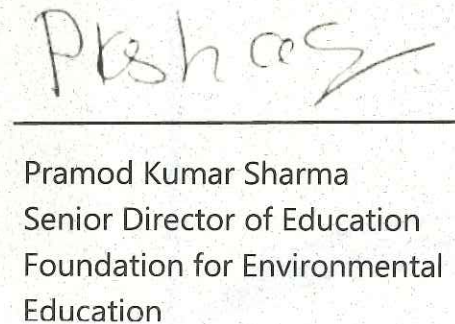 Pramod Kumar Sharma
Senior Director of Education
Foundation for Environmental
Education